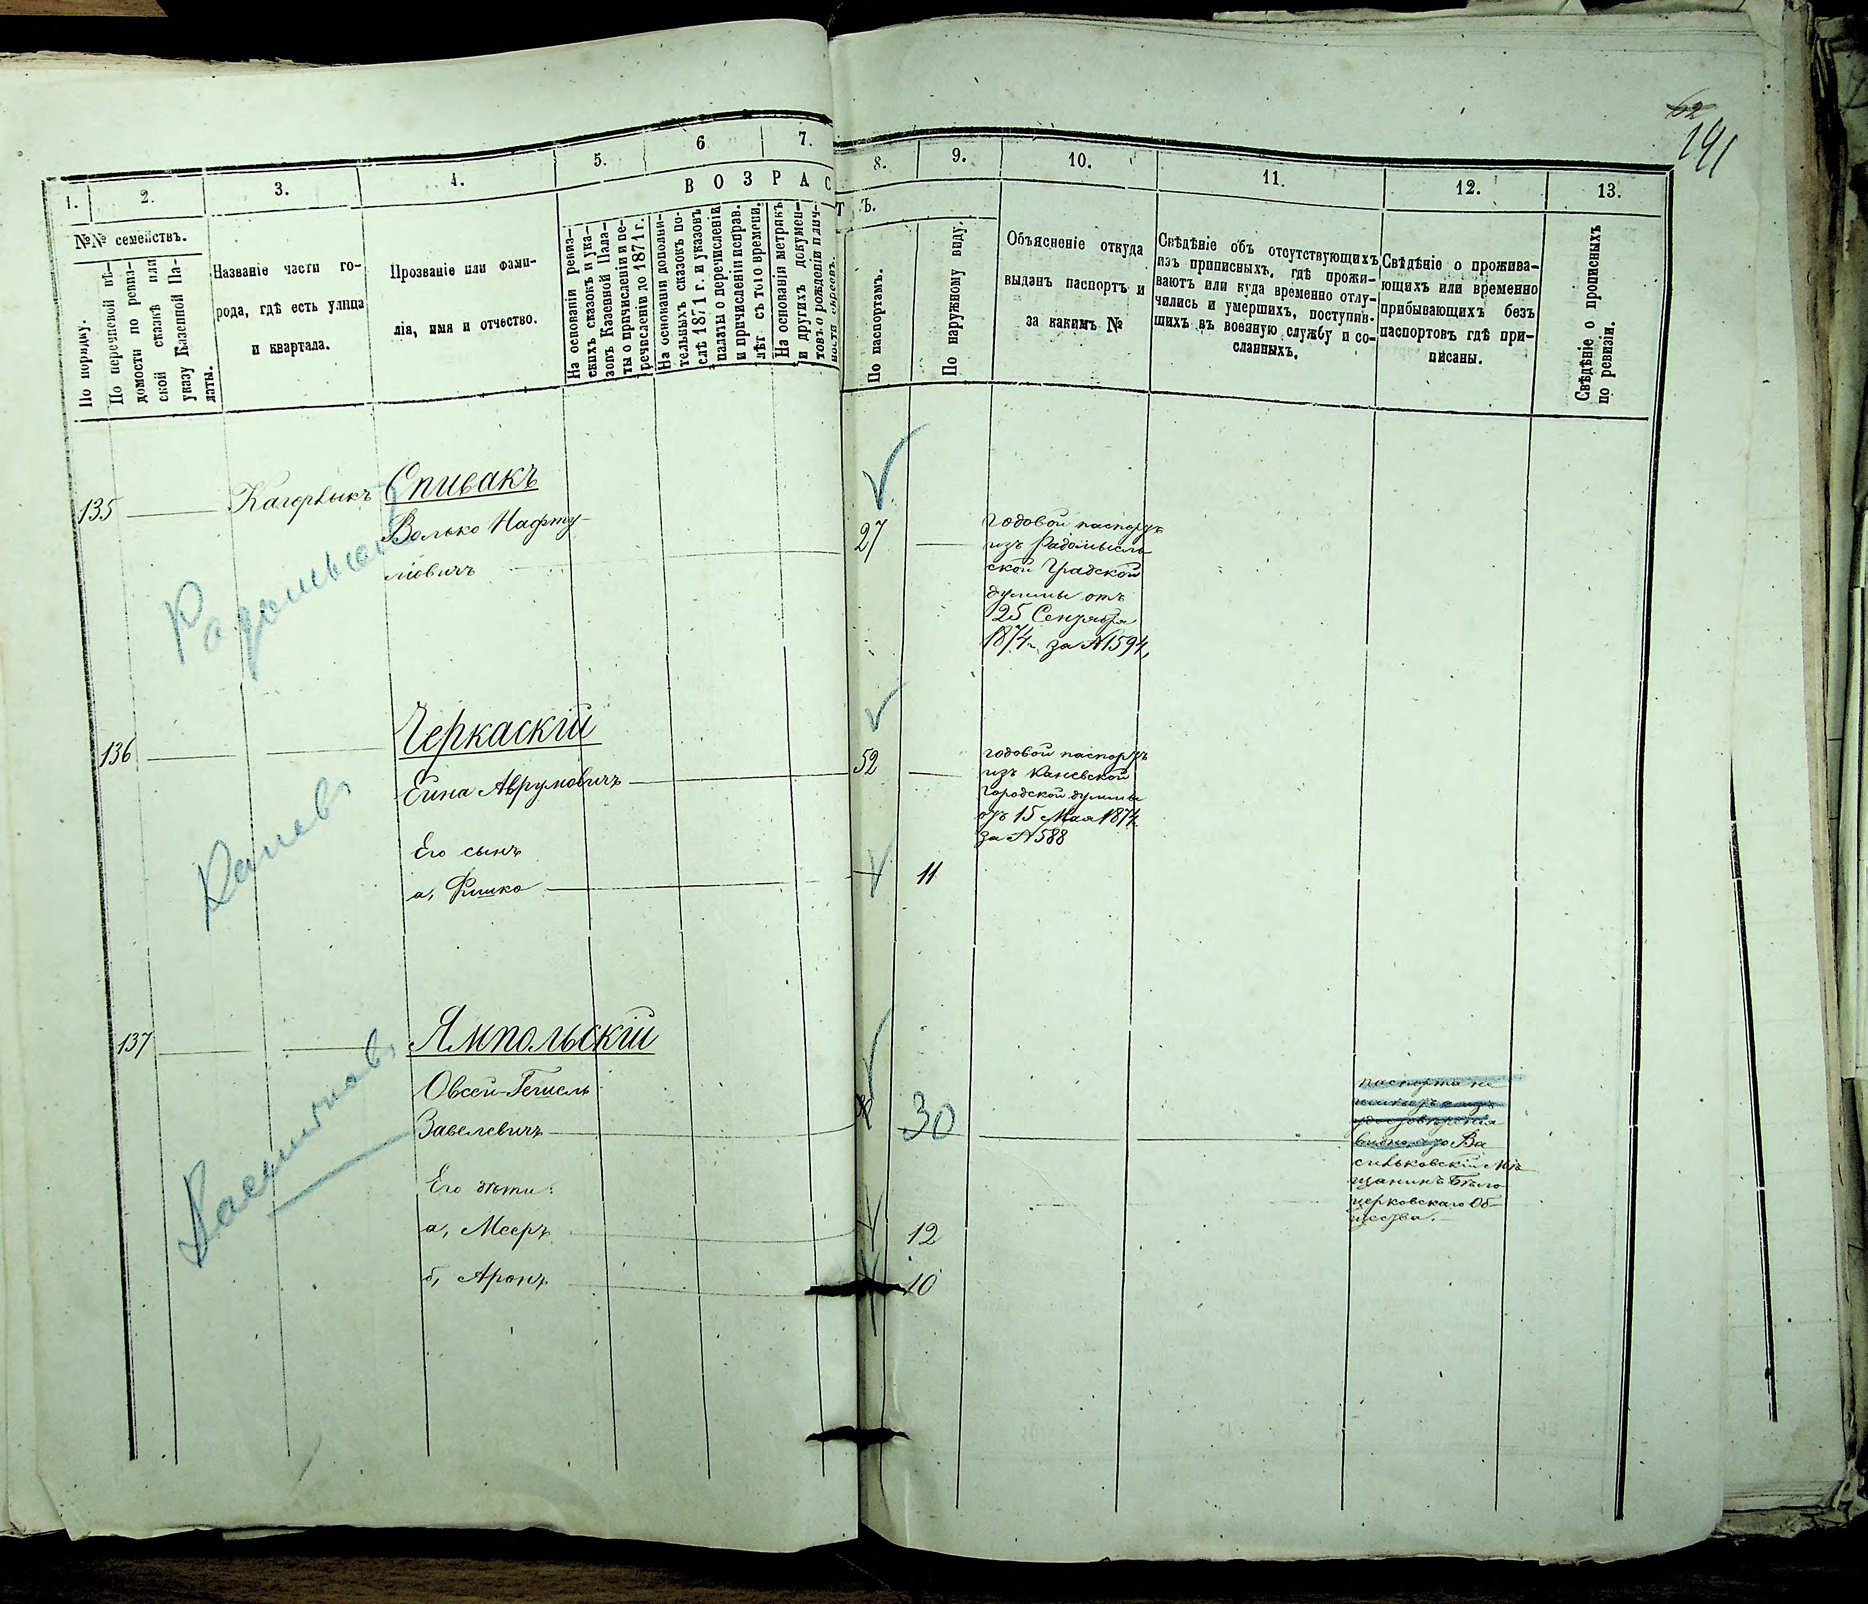 62
141
1.
2.
3.
4.
5.
6
7.
8.
9.
10.
11.
12.
13.
ВОЗРАС
ТЪ.
№№ семействъ.
По порядку.
По перечневой вѣ-
домости по ревиз-
ской сказкѣ или
указу Казенной Па-
латы.
Названіе части го-
рода, гдѣ есть улица
и квартала.
Прозваніе или фами-
лія, имя и отчество.
На основаніи ревиз-
скихъ сказокъ и ука-
зовъ Казенной Пала-
ты о причисленіи и пе-
речисленіи до 1871 г.
На основаніи дополни-
тельныхъ сказокъ по-
слѣ 1871 г. и указовъ
палаты о перечисленіи
и причисленіи исправ.
лѣт съ того времени.
На основаніи метрикъ
и другихъ докумен-
товъ о рожденіи и лич-
ности евреевъ.
По паспортамъ.
По наружному виду.
Объясненіе откуда
выданъ паспортъ и
за какимъ №
Свѣдѣніе объ отсутствующихъ
изъ приписныхъ, гдѣ прожи-
ваютъ или куда временно отлу-
чились и умершихъ, поступив-
шихъ въ военную службу и со-
сланныхъ.
Свѣдѣніе о прожива-
ющихъ или временно
прибывающихъ безъ
паспортовъ гдѣ при-
писаны.
Свѣдѣніе о прописныхъ
по ревизіи.
135
Кагорлыкъ
Спивакъ
Волько Нафту-
ліовичъ
27
годовой паспортъ
изъ Радомысль-
ской Градской
думмы отъ
25 Сентября
1874 г. за №1594,
136
Черкаскій
Еина Аврумовичъ
52
годовой паспортъ
изъ Каневской
городской думмы
отъ 15 Мая 1874
за №588
Каневъ
Его сынъ
а, Фишко
11
137
Ямпольскій
Овсей-Гешель
Завелевичъ
30
паспорта не
видно, что Ва
сильковскій Мѣ
щанинъ Бѣло
церковскаго Об-
щества.
Его дѣти:
а, Мееръ
12
б, Аронъ
10